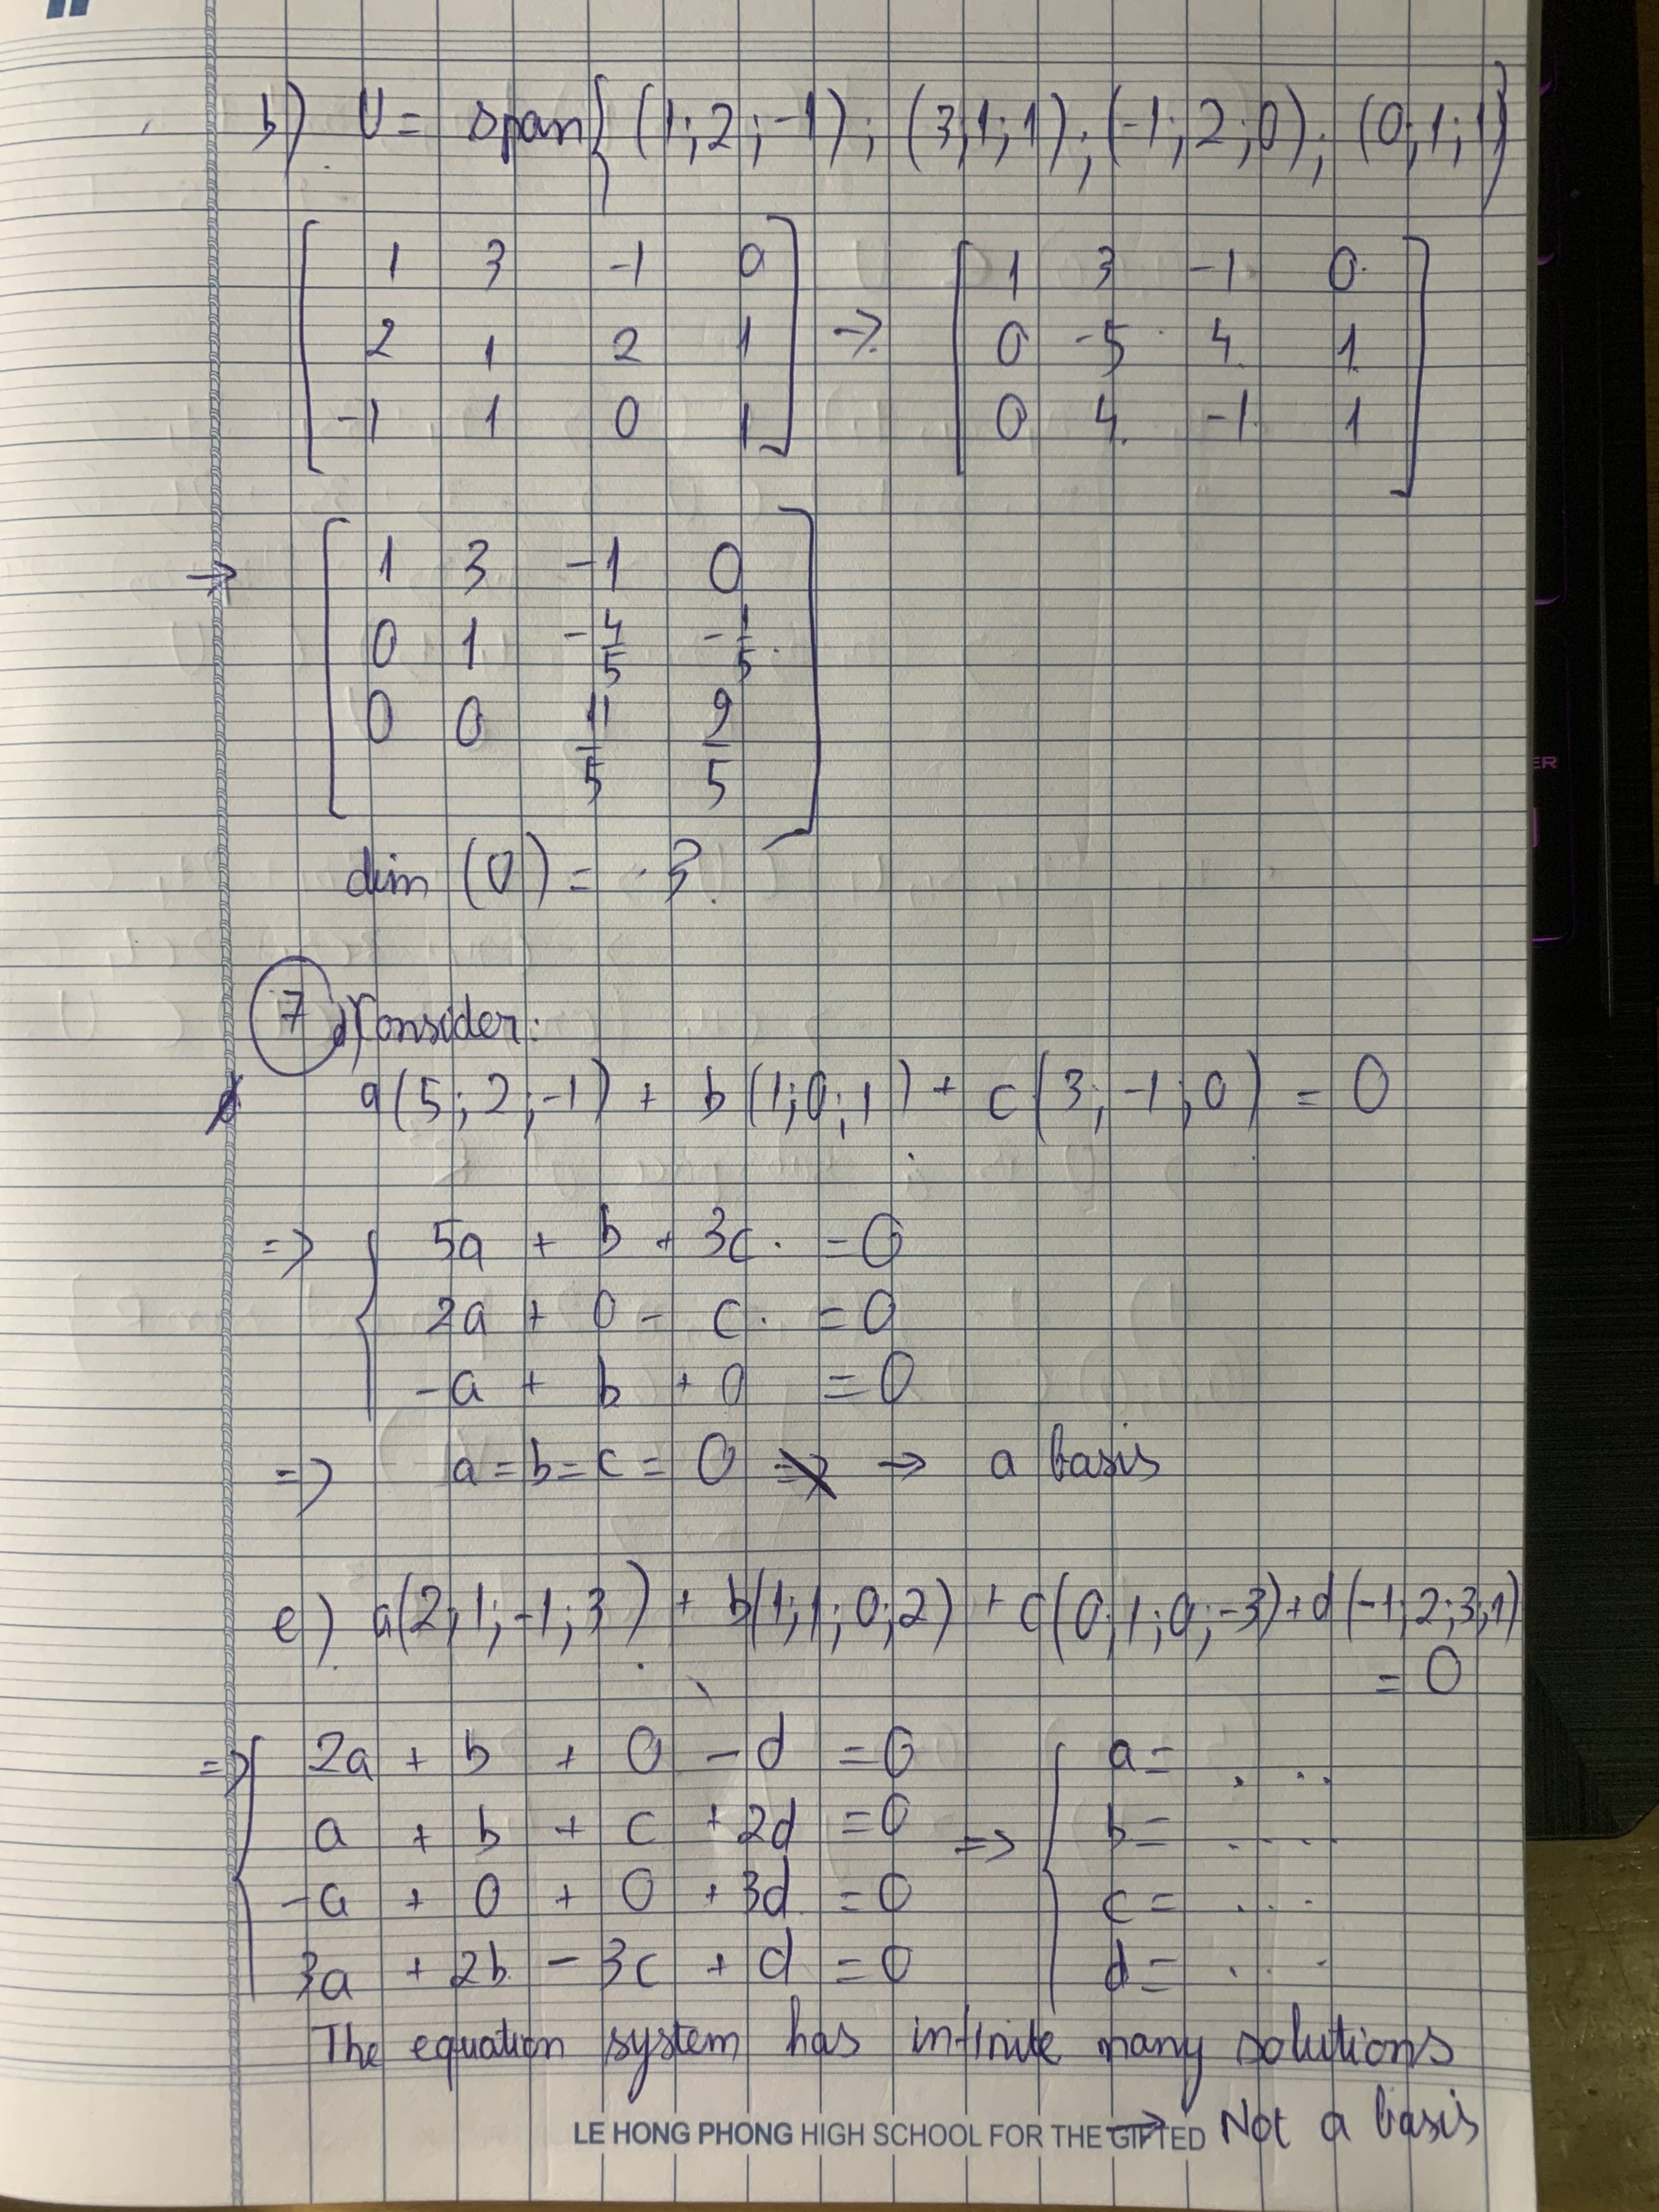 b) U = span{(1;2;-1); (3;1;1); (-1;2;0); (0;1;1)
[1 3 -1 0] [1 3 -1 0]
[2 1 2 1] → [0 -5 4 1]
[-1 1 0 1] [0 4 -1 1]
→ [1 3 -1 0]
[0 1 -4/5 -1/5]
[0 0 11/5 9/5]
dim (U) = 3.
7 d) Consider:
a(5;2;-1) + b(1;0;1) + c(3;-1;0) = 0
=> { 5a + b + 3c = 0
2a + 0 - c = 0
-a + b + 0 = 0
=> a = b = c = 0 → a basis
e) a(2;1;-1;3) + b(1;1;0;2) + c(0;1;0;-3) + d(-1;2;3;1)
= 0
=> { 2a + b + 0 - d = 0 { a = ...
a + b + c + 2d = 0 => b = ....
-a + 0 + 0 + 3d = 0 c = ...
3a + 2b - 3c + d = 0 d = ...
The equation system has infinite many solutions
LE HONG PHONG HIGH SCHOOL FOR THE GIFTED → Not a basis
ER